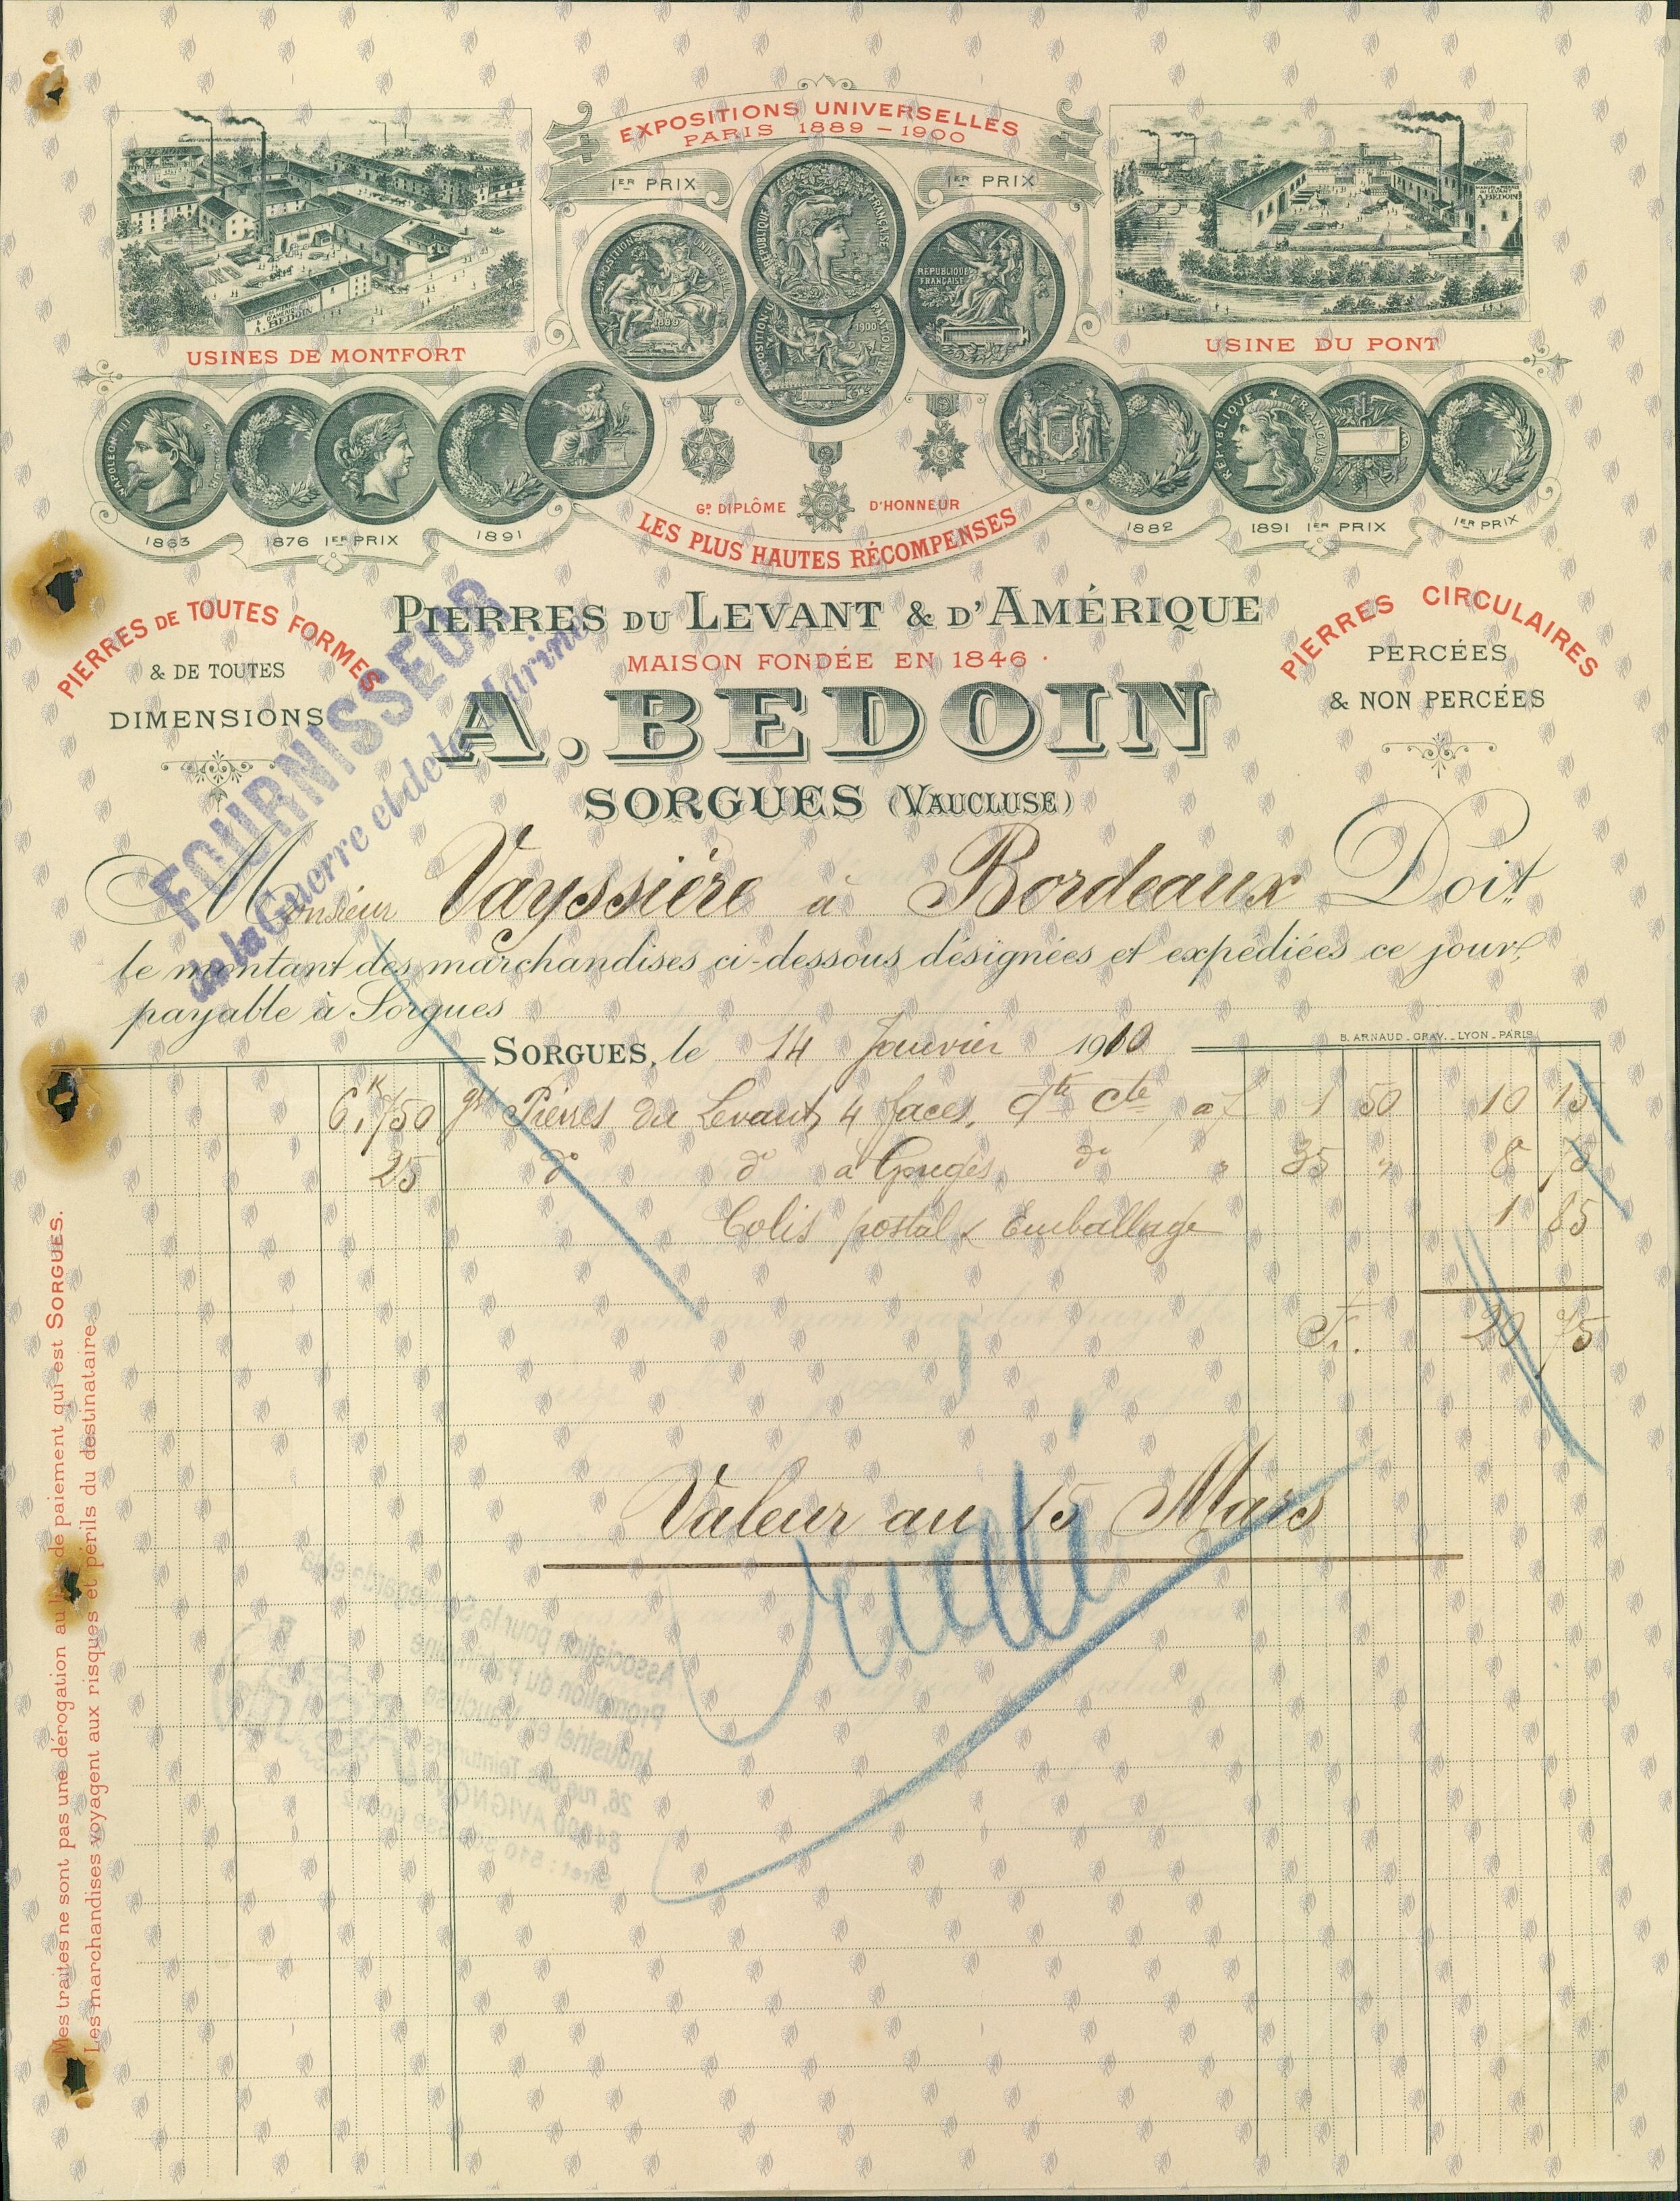 EXPOSITIONS UNIVERSELLES
PARIS 1889 - 1900
1ER PRIX
1ER PRIX
EXPOSITION UNIVERSELLE
1889
RÉPUBLIQUE FRANÇAISE
1900
RÉPUBLIQUE
FRANÇAISE
A. BEDOIN
A. BEDOIN
USINES DE MONTFORT
USINE DU PONT
NAPOLEON III
REPVBLIQVE FRANÇAISE
1863
1876 1ER PRIX
1891
GD DIPLÔME D'HONNEUR
LES PLUS HAUTES RÉCOMPENSES
1882
1891 1ER PRIX
1ER PRIX
PIERRES DE TOUTES FORMES
& DE TOUTES
DIMENSIONS
PIERRES DU LEVANT & D'AMÉRIQUE
MAISON FONDÉE EN 1846
A. BEDOIN
SORGUES (VAUCLUSE)
PIERRES CIRCULAIRES
PERCÉES
& NON PERCÉES
FOURNISSEUR
de la Guerre et de la Marine
Monsieur Vayssière à Bordeaux Doit
le montant des marchandises ci-dessous désignées et expédiées ce jour,
payable à Sorgues
SORGUES, le 14 Janvier 1910
B. ARNAUD - GRAV. - LYON - PARIS
6K,750 gr Pierres du Levant, 4 faces, à f 1 50 10 15
25 do do à Gouges, do " 35 " 8 75
Colis postal & Emballage 1 85
Fr. 20 75
Valeur au 15 Mars
Mes traites ne sont pas une dérogation au lieu de paiement qui est SORGUES.
Les marchandises voyagent aux risques et périls du destinataire.
Association pour la Sauvegarde et la
Promotion du Patrimoine
Industriel en Vaucluse
26, rue des Teinturiers
84000 AVIGNON